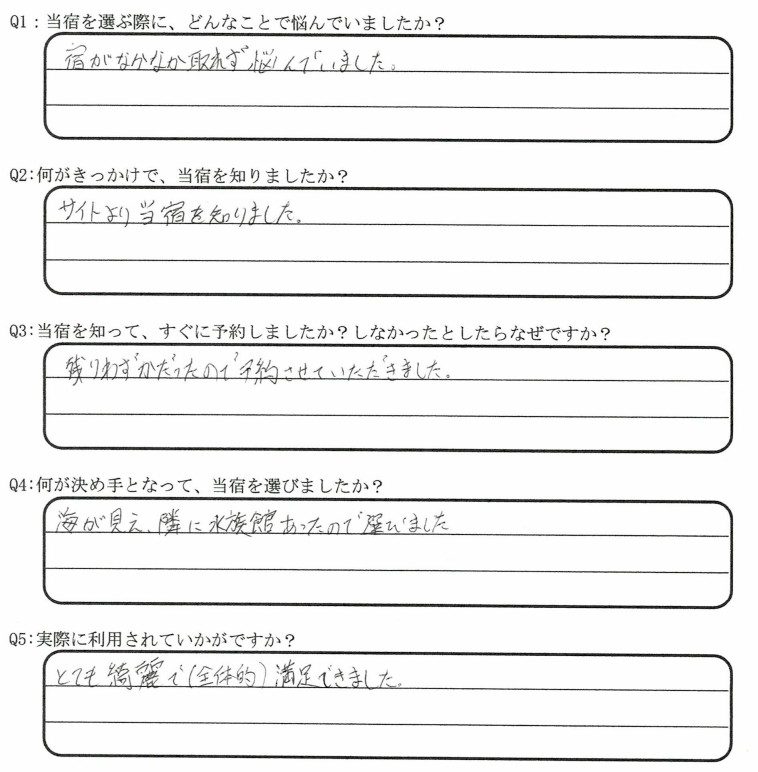 Q1：当宿を選ぶ際に、どんなことで悩んでいましたか？
宿がなかなか取れず悩んでいました。
Q2:何がきっかけで、当宿を知りましたか？
サイトより当宿を知りました。
Q3:当宿を知って、すぐに予約しましたか？しなかったとしたらなぜですか？
残りわずかだったので予約させていただきました。
Q4:何が決め手となって、当宿を選びましたか？
海が見え、隣に水族館あったので選びました
Q5:実際に利用されていかがですか？
とても綺麗で(全体的)満足できました。